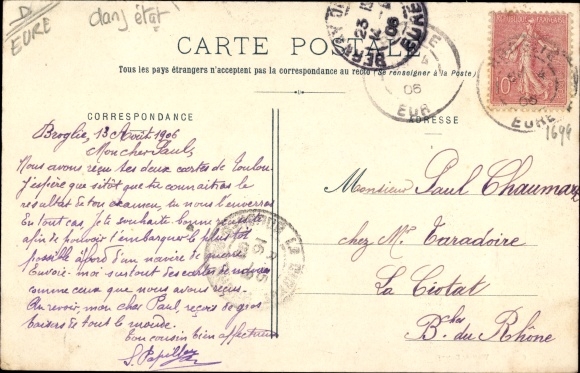 D
EURE
dans état
CARTE POSTALE
Tous les pays étrangers n'acceptent pas la correspondance au recto (Se renseigner à la Poste)
CORRESPONDANCE
ADRESSE
EURE
1699
Broglie, 13 Août 1906
Mon cher Paul,
Nous avons reçu tes deux cartes de Toulon
J'espère que sitôt que tu connaîtras le
résultat de ton examen, tu nous l'enverras
En tout cas, je te souhaite bonne
afin de pouvoir t'embarquer le plus tôt
possible à bord d'un navire de guerre
Envoie-moi surtout des cartes de navires
comme ceux que nous avons reçus.
Au revoir, mon cher Paul, reçois de gros
baisers de tout le monde.
Ton cousin bien affectueux
S. Papillon
Monsieur Paul Chaumare
chez Mr Taradoire
La Ciotat
Bches du Rhône